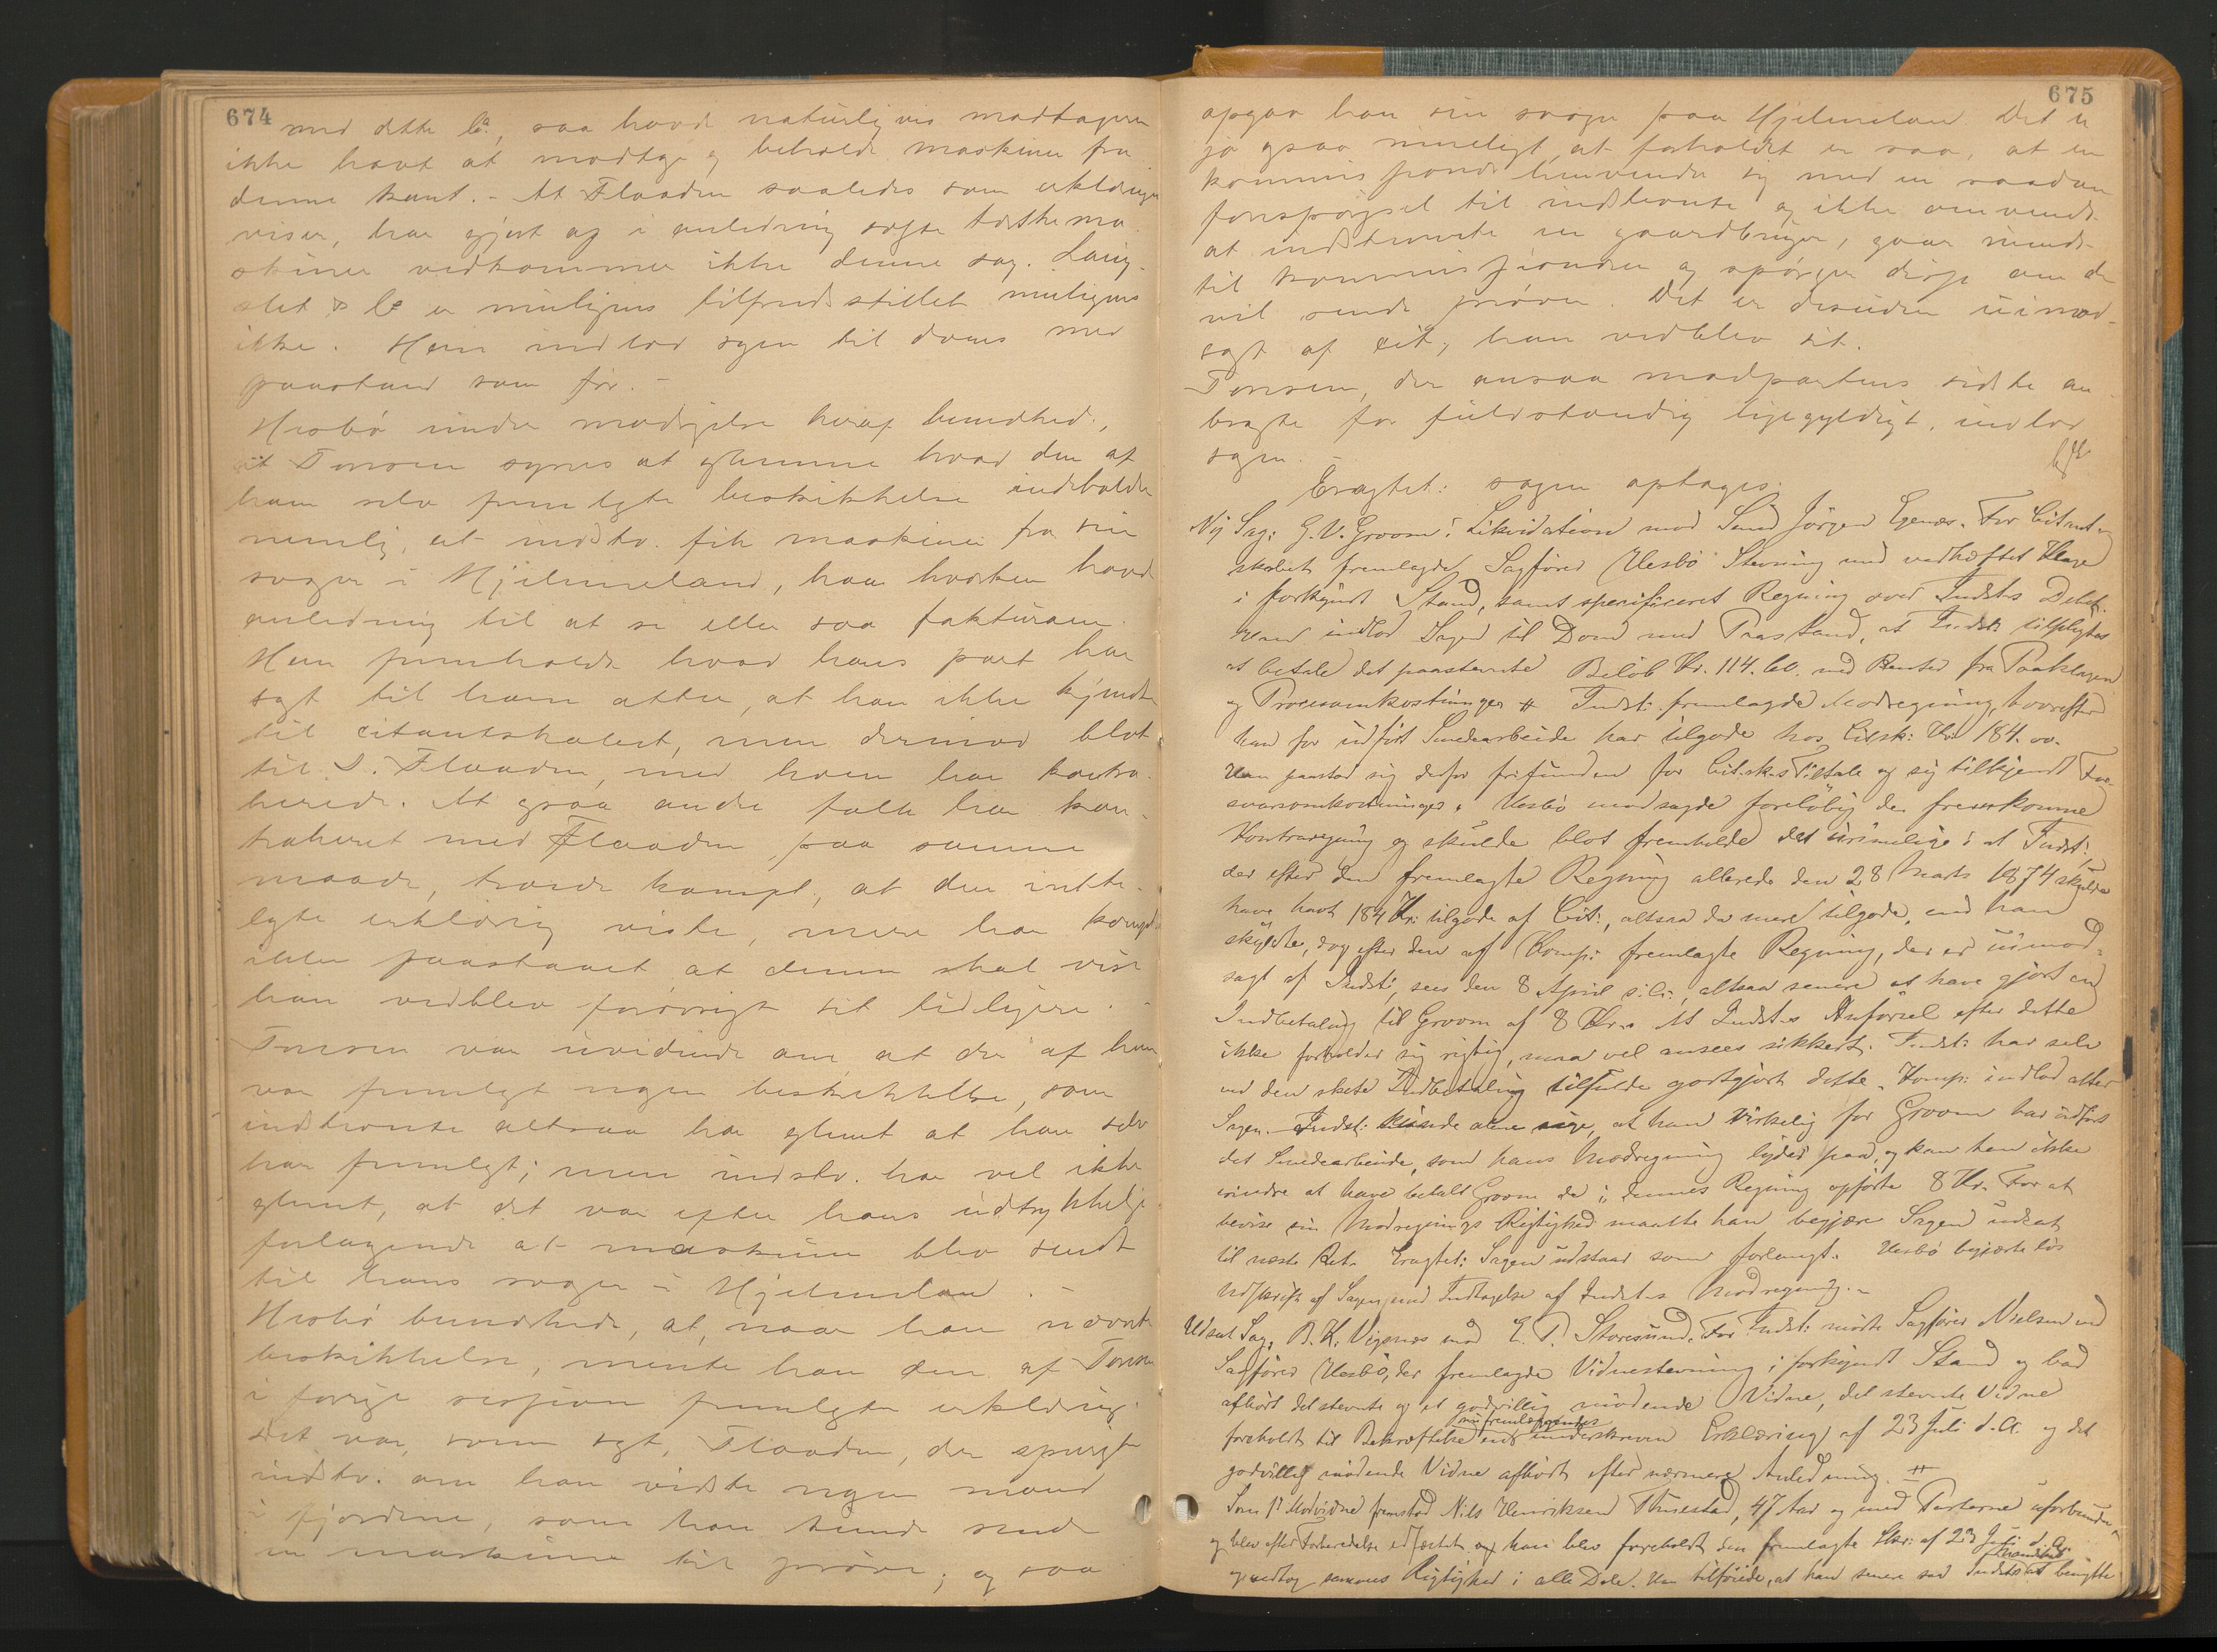 674
med dette lc., saa havde naturligvis modtageren
ikke havt at modtage og beholde maskinen fra
denne kant. - At Flaaden saaledes som erklæringen
viser, har gjort og i anledning sogte tærskema-
skiner vedkommer ikke denne sag. Lang-
slet & Co er muligens tilfredsstillet muligens
ikke. Han indlod sagen til doms med
paastand som før. -
Hesbø under modsigelse heraf bemærked,
at Tonsen synes at glemme hvad den af
ham selv fremlagte beskikkelse indeholder
nemlig, at indstv. fik maskinen fra sin
svoger i Hjelmeland, han hverken havde
anledning til at se eller saa fakturaen.
Han fremholdt hvad hans part har
sagt til ham atter, at han ikke kjendte
til citantskabet, men derimod blot
til S. Flaaden, med hvem han kontra-
herede. At ogsaa andre folk har kon-
traheret med Flaaden paa samme
maade, troede kompt., at den indle-
gte erklæring viste, mere har kompt.
ikke paastaaet at denne skal vise
han vedblev forøvrigt sit tidligere. -
Tonsen var uvidende om at der af ham
var fremlagt nogen beskikkelse, som
indstevnte altsaa har glemt at han selv
har fremlagt; men indstv. har vel ikke
glemt, at det var efter hans udtrykkelige
forlangende at maskinen blev sendt
til hans svoger i Hjelmeland. -
Hesbø bemærkede, at, naar han nævnte
beskikkelse, mente han den af Tonsen
i forrige session fremlagte erklæring.
Det var, som sagt, Flaaden, der spurgte
indstv. om han vidste nogen mand
i fjordene, som han kunde sende
en maskine til prøve; og saa
675
opgav han sin svoger paa Hjelmeland. Det er
jo ogsaa rimeligt, at forholdet er saa, at en
kommissionær henvender sig med en saadan
forespørgsel til indstevnte og ikke omvendt
at indstevnte en gaardbruger, gaar
til kommissionæren og spørger disse om de
vil sende prøver. Det er desuden uimod-
sagt af cit., han vedblev sit.
Tonsen, der ansaa modpartens sidste an-
bragte for fuldstændig ligegyldigt, indlod
sagen. -
Eragtet: sagen optages.
Ny Sag: G. V. Grooms Likvidation mod Smed Jørgen Egenæs. For Citant-
skabet fremlagde Sagfører Hesbø Stevning med vedhæftet Klage
i forkyndt Stand, samt specificeret Regning over Indsts Debet.
Han indlod Sagen til Dom med Paastand, at Indst: tilpligtes
at betale det paastevnte Beløb Kr. 114. 60. med Renter fra Paaklagen
og Procesomkostninger # Indst: fremlagde Modregning, hvorefter
han for udført Smedearbeide har tilgode hos Citsk: Kr. 184. 00.
Han paastod sig derfor frifunden for Citsk.s Tiltale og sig tilkjendt For-
svarsomkostninger. Hesbø modsagde foreløbig den fremkomne
Kontraregning og skulde blot fremholde det urimelige i at Indst:
der efter den fremlagte Regning allerede den 28 Marts 1874 skulde
have havt 184 Kr: tilgode af Cit:, altsaa da mere tilgode, end han
skyldte, dog efter den af Komp: fremlagte Regning, der er uimod-
sagt af Indst:, sees den 8 April s. A., altsaa senere at have gjort en
Indbetaling til Groom af 8 Kr. At Indst.s Anførsel efter dette
ikke forholder sig rigtig, maa vel ansees sikkert. Indst: har selv
ved den skete Indbetaling tilfulde godtgjort dette. Komp: indlod atter
Sagen. Indst: kunde alene sige, at han virkelig for Groom har udført
det Smedearbeide, som hans Modregning lyder paa, og kan han ikke
erindre at have betalt Groom de i dennes Regning opførte 8 Kr. For at
bevise sin Modregnings Rigtighed maatte han begjære Sagen udsat
til næste Ret. Eragtet: Sagen udstaar som forlangt. Hesbø begjærte
Udskrift af Sagen med Indtagelse af Indst.s Modregning. -
Udsat Sag, B. K. Vignes mod E. T. Storesund. For Indst: mødte Sagfører Nielsen ved
Sagfører Hesbø, der fremlagde Vidnestevning i forkyndt Stand og bad
afhørt det stevnte og et godvillig mødende Vidne, det stevnte Vidne
foreholdt til Bekræftelse en nu fremlæggendes underskreven Erklæring af 23 Juli d. A. og det
godvillig mødende Vidne afhørt efter nærmere Anledning. #
Som 1ste Modvidne fremstod Nils Henriksen Thuestad, 47 Aar og med Parterne uforbunden
og blev efter Forberedelse edfæstet, og han blev foreholdt den fremlagte Erkl: af 23 Juli d. A.
og vedtog sammes Rigtighed i alle Dele. Han tilføiede, at han senere saa Indsts at benytte